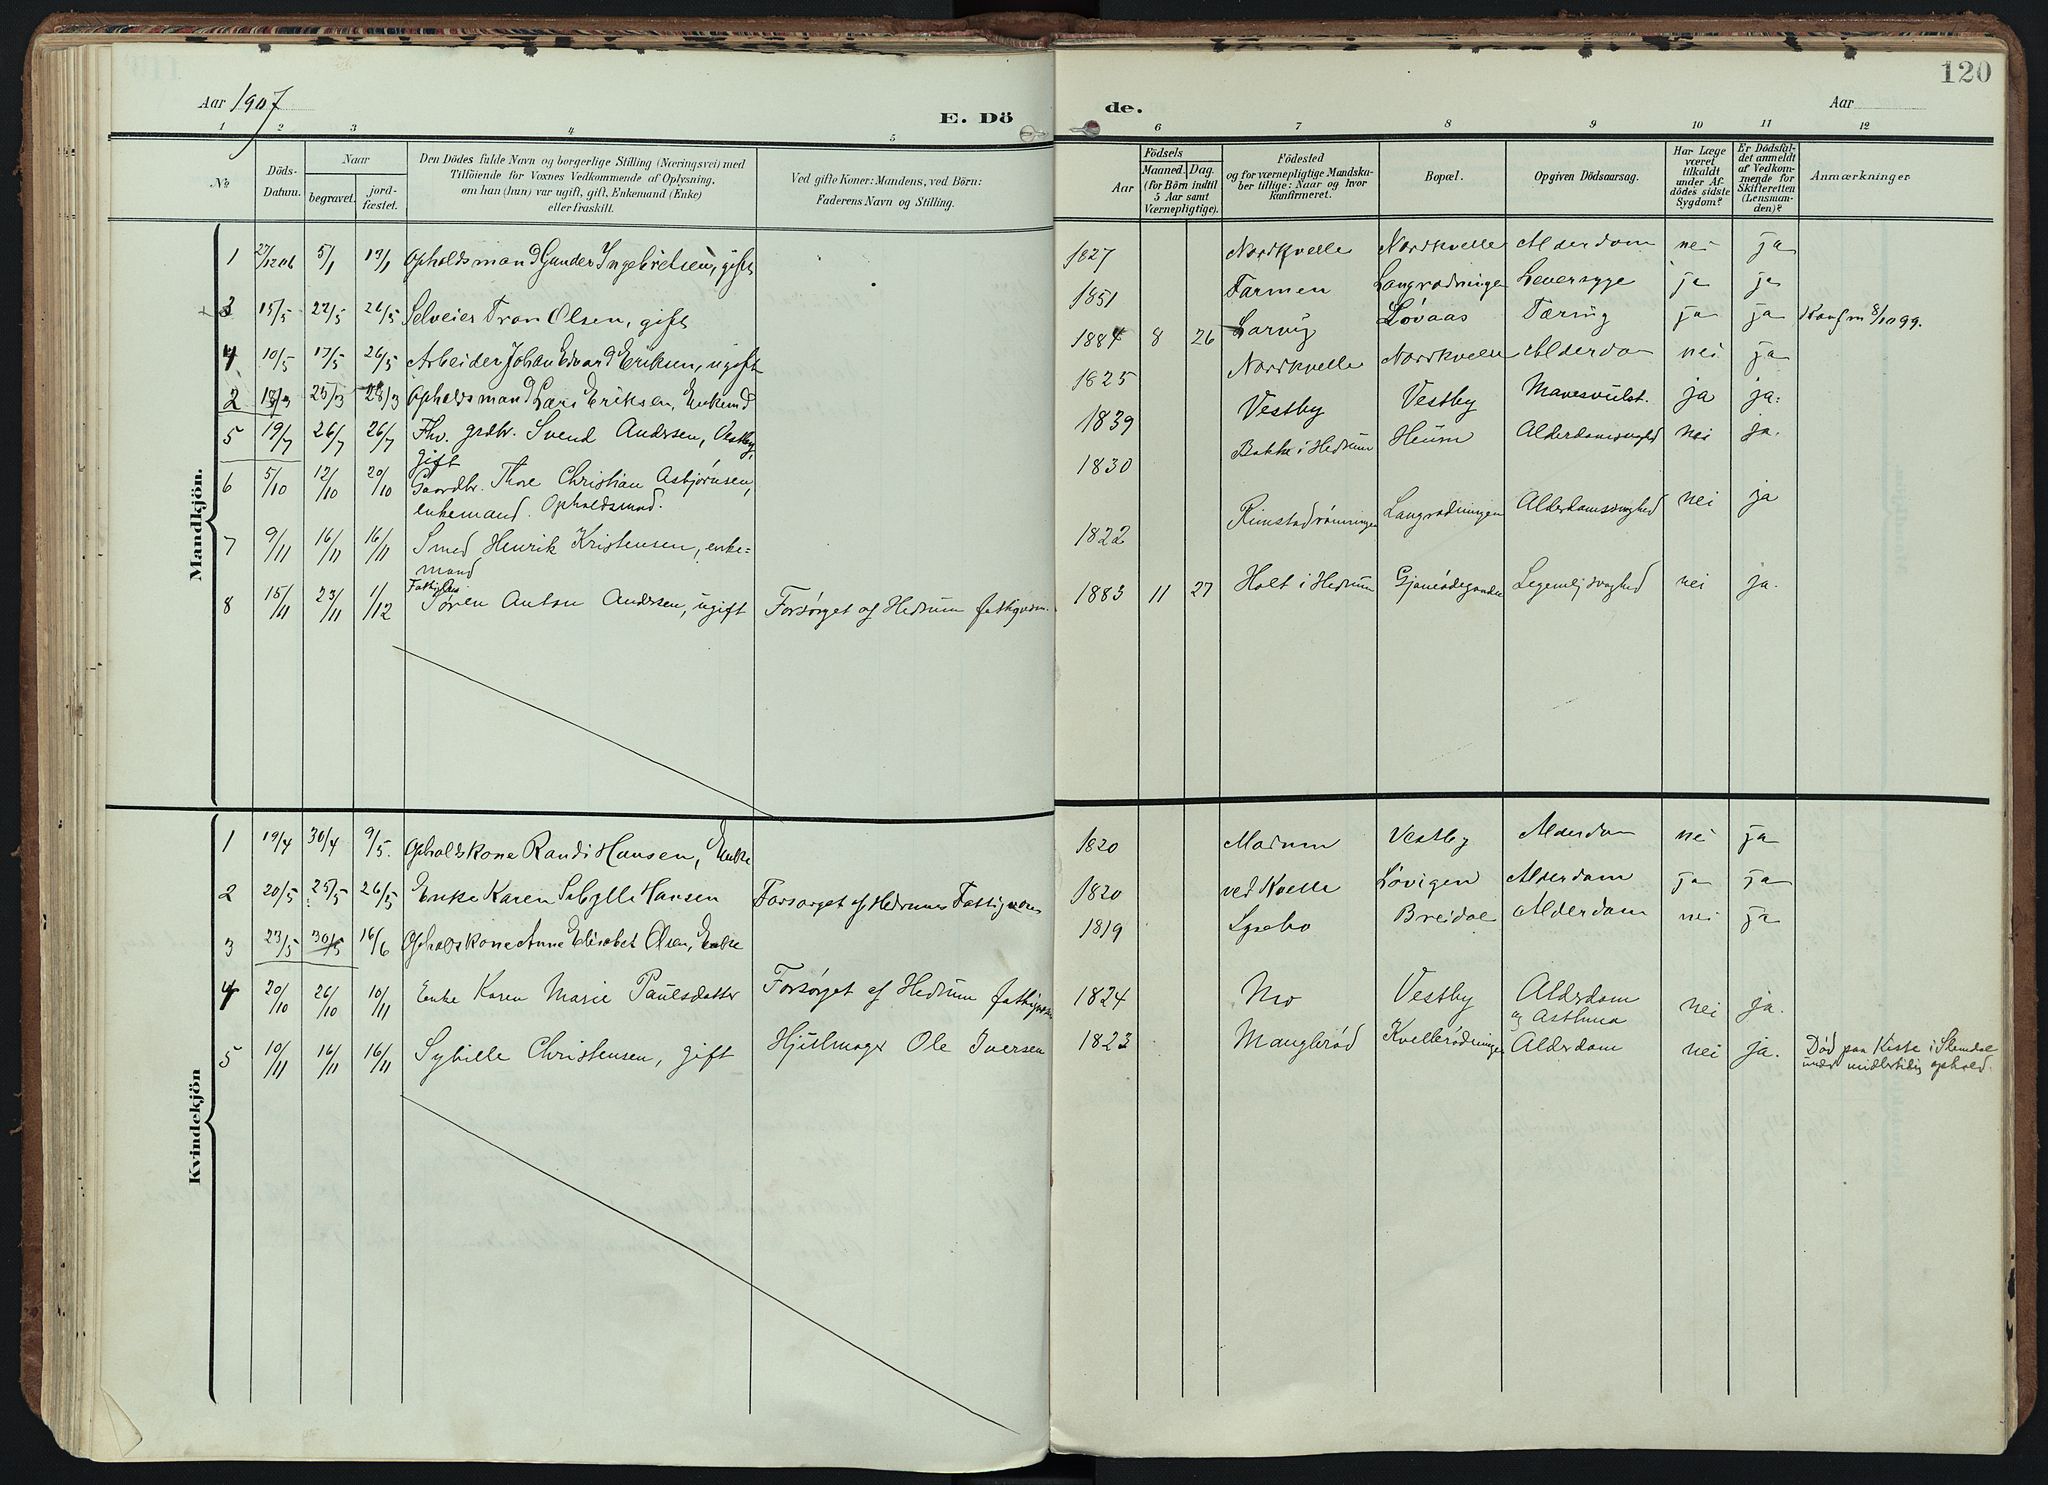 120
Aar 1907
E. Dö
de.
Aar
1 2 3 4 5 6 7 8 9 10 11 12
№
Döds-
Datum.
Naar
begravet.
jord-
fæstet.
Den Dödes fulde Navn og borgerlige Stilling (Næringsvei) med
Tilföiende for Voxnes Vedkommende af Oplysning,
om han (hun) var ugift, gift, Enkemand (Enke)
eller fraskilt.
Ved gifte Koner: Mandens, ved Börn:
Faderens Navn og Stilling.
Födsels
Aar
Maaned. Dag.
(for Börn indtil
5 Aar samt
Værnepligtige).
Födested
og for værnepligtige Mandska-
ber tillige: Naar og hvor
konfirmeret.
Bopæl.
Opgiven Dödsaarsag.
Har Læge
været
tilkaldt
under Af-
dödes sidste
Sygdom?
Er Dödsfal-
det anmeldt
af Vedkom-
mende for
Skifteretten
(Lensman-
den)?
Anmærkninger
Mandkjön.
1 27/12 06 5/1 13/1 Opholdsmand Gunder Ingebretsen, gift 1827 Nordkvelle Nordkvelle Alderdom nei ja
3 15/5 22/5 26/5 Selveier Tron Olsen, gift 1851 Farmen Langrødningen Leversyge ja ja
4 10/5 17/5 26/5 Arbeider Johan Edvard Eriksen, ugift 1884 8 26 Larvig Løvaas Tæring ja ja Konfm 8/10 99.
2 18/3 25/3 28/3 Opholdsmand Lars Eriksen, Enkemd 1825 Nordkvelle Nordkvelle Alderdom nei ja
5 19/7 26/7 26/7 Fhv. grdbr. Svend Andersen, Vestby,
gift 1839 Vestby Vestby Mavesvulst. ja ja.
6 5/10 12/10 20/10 Gaardbr. Thore Christian Asbjørnsen,
enkemand. Opholdsmand. 1830 Bakke i Hedrum Heum Alderdomssvaghed nei ja.
7 9/11 16/11 16/11 Smed Henrik Kristensen, enke-
mand 1822 Rimstadrønningen Langrødningen Alderdomssvaghed nei ja
8 15/11 23/11 1/12 Fattiglem
Søren Anton Andersen, ugift Forsørget af Hedrum fattigvæsn. 1883 11 27 Holt i Hedrum Legemlig svaghed nei ja.
Kvindekjön
1 19/4 30/4 9/5. Opholdskone Randi Hansen, Enke 1820 Marum Vestby Alderdom nei ja
2 20/5 25/5 26/5 Enke Karen Sibylle Hansen Forsørget af Hedrums Fattigvæs 1820 ved Kvelle Løvigen Alderdom ja ja
3 23/5 30/5 16/6 Opholdskone Anne Elisabet Olsen, Enke 1819 Lysebo Breidal Alderdom nei ja
4 20/10 26/10 10/11 Enke Karen Marie Paulsdatter Forsørget af Hedrum fattigvæsen 1824 Mo Vestby Alderdom
og Asthma nei ja.
5 10/11 16/11 16/11 Sybille Christensen, gift Hjulmager Ole Iversen 1823 Manglerød Kvellerødningen Alderdom nei ja. Død paa Kiste i Slemdal
under midlertidig ophold.